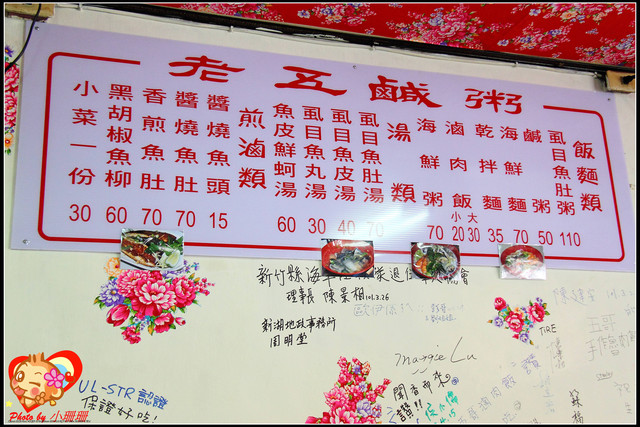 老五鹹粥
飯麵類
虱目魚肚粥 110
鹹粥 50
海鮮麵 70
乾拌麵 35
滷肉飯 小20 大30
海鮮粥 70
湯類
虱目魚肚湯 70
虱目魚皮湯 40
虱目魚丸湯 30
魚皮鮮蚵湯 60
煎滷類
醬燒魚頭 15
醬燒魚肚 70
香煎魚肚 70
黑胡椒魚柳 60
小菜一份 30
新竹縣海
理事長 陳景相 101.3.26
新湖地政事務所
周明堂
maggie Lu
聞香而來
讚!!
TIRE
五哥
UL-STR 認證
保證好吃!
Photo by 小珊珊